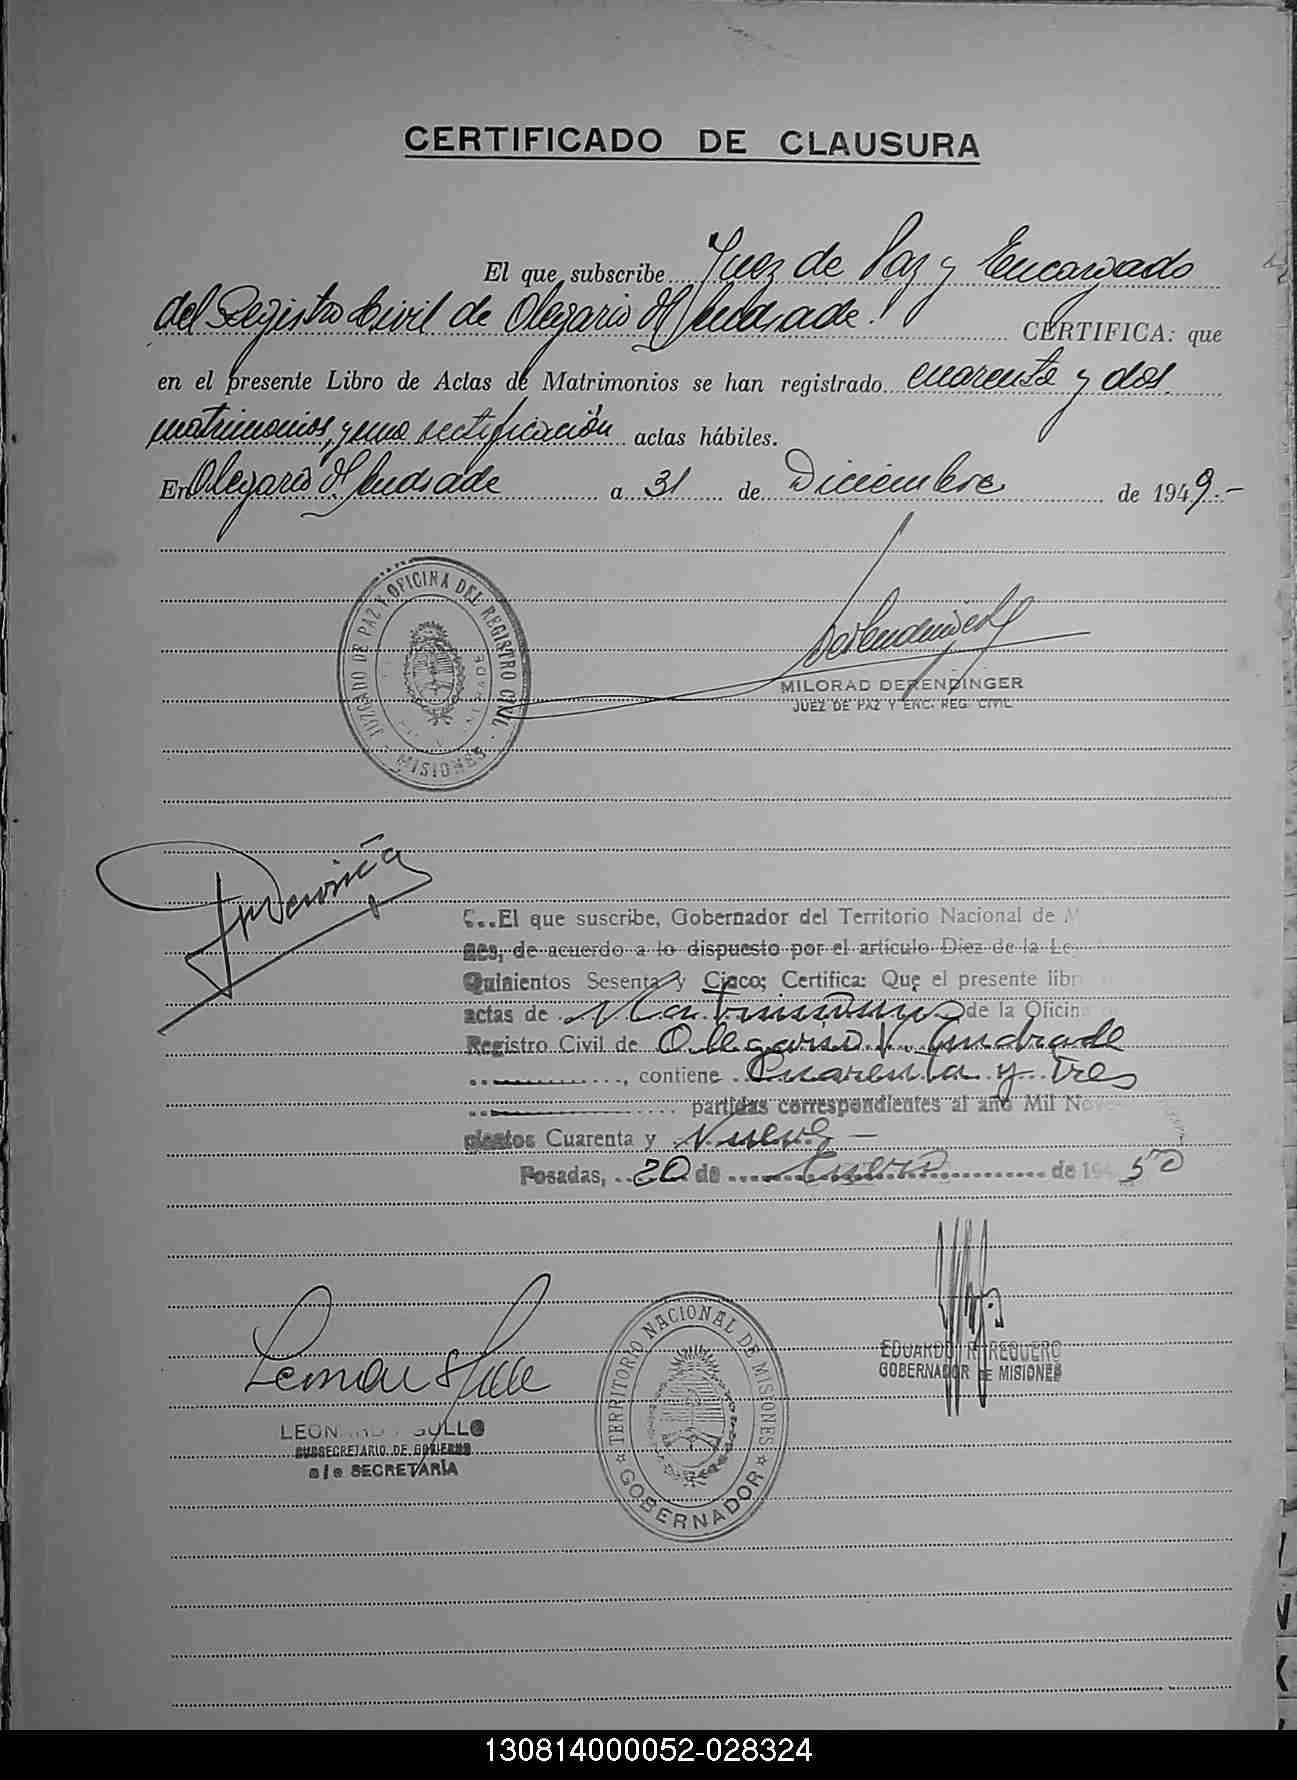 CERTIFICADO DE CLAUSURA
El que subscribe Juez de Paz y Encargado
del Registro Civil de Olegario V. Andrade. CERTIFICA: que
en el presente Libro de Actas de Matrimonios se han registrado cuarenta y dos
matrimonios, y una rectificación actas hábiles.
En Olegario V. Andrade a 31 de Diciembre de 1949.-
JUZGADO DE PAZ Y OFICINA DEL REGISTRO CIVIL
MISIONES
MILORAD DERENDINGER
JUEZ DE PAZ Y ENC. REG. CIVIL
El que suscribe, Gobernador del Territorio Nacional de M
nes, de acuerdo a lo dispuesto por el artículo Diez de la Le
Quinientos Sesenta y Cinco; Certifica: Que el presente libr
actas de Matrimonios de la Oficin
Registro Civil de Olegario V. Andrade
, contiene Cuarenta y Tres
partidas correspondientes al año Mil Nove
cientos Cuarenta y Nueve -
Posadas, 20 de Enero de 1950
LEON GULLO
SUBSECRETARIO DE GOBIERNO
a/c SECRETARÍA
TERRITORIO NACIONAL DE MISIONES
GOBERNADOR
EDUARDO REQUERO
GOBERNADOR DE MISIONES
130814000052-028324